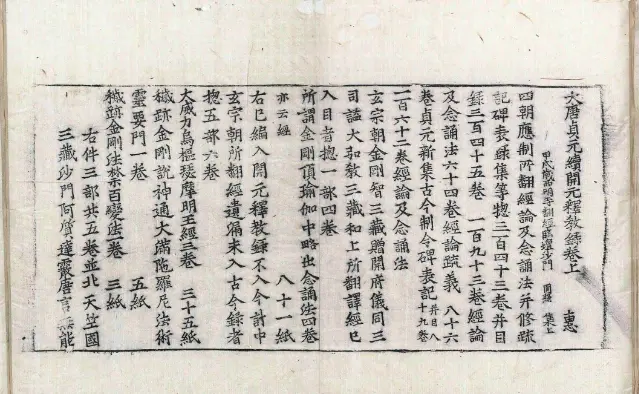 大唐貞元續開元釋教錄卷上　惠
甲戌歲西明寺翻經臨壇沙門　圓照　集上
四朝應制所翻經論及念誦法并修疏
記碑表錄集等揔三百四十三卷并目
錄三百四十五卷　一百九十三卷經論
及念誦法六十四卷經論疏義　八十六
卷貞元新集古今制令碑表記　并目八十九卷
一百六十二卷經論及念誦法
玄宗朝金剛智三藏贈開府儀同三
司謚大弘教三藏和上所翻譯經已
入目者揔一部四卷
所謂金剛頂瑜伽中略出念誦法四卷
亦云經　八十一紙
右已編入開元釋教錄不入今計中
玄宗朝所翻經遺漏未入古今錄者
揔五部六卷
大威力烏樞瑟摩明王經三卷　三十五紙
穢跡金剛說神通大滿陁羅尼法術
靈要門一卷　五紙
穢跡金剛法禁百變法一卷　三紙
右件三部共五卷並北天竺國
三藏沙門阿質達霰唐言無能